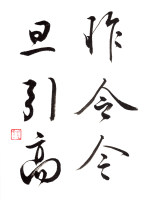 昨令今
旦引高